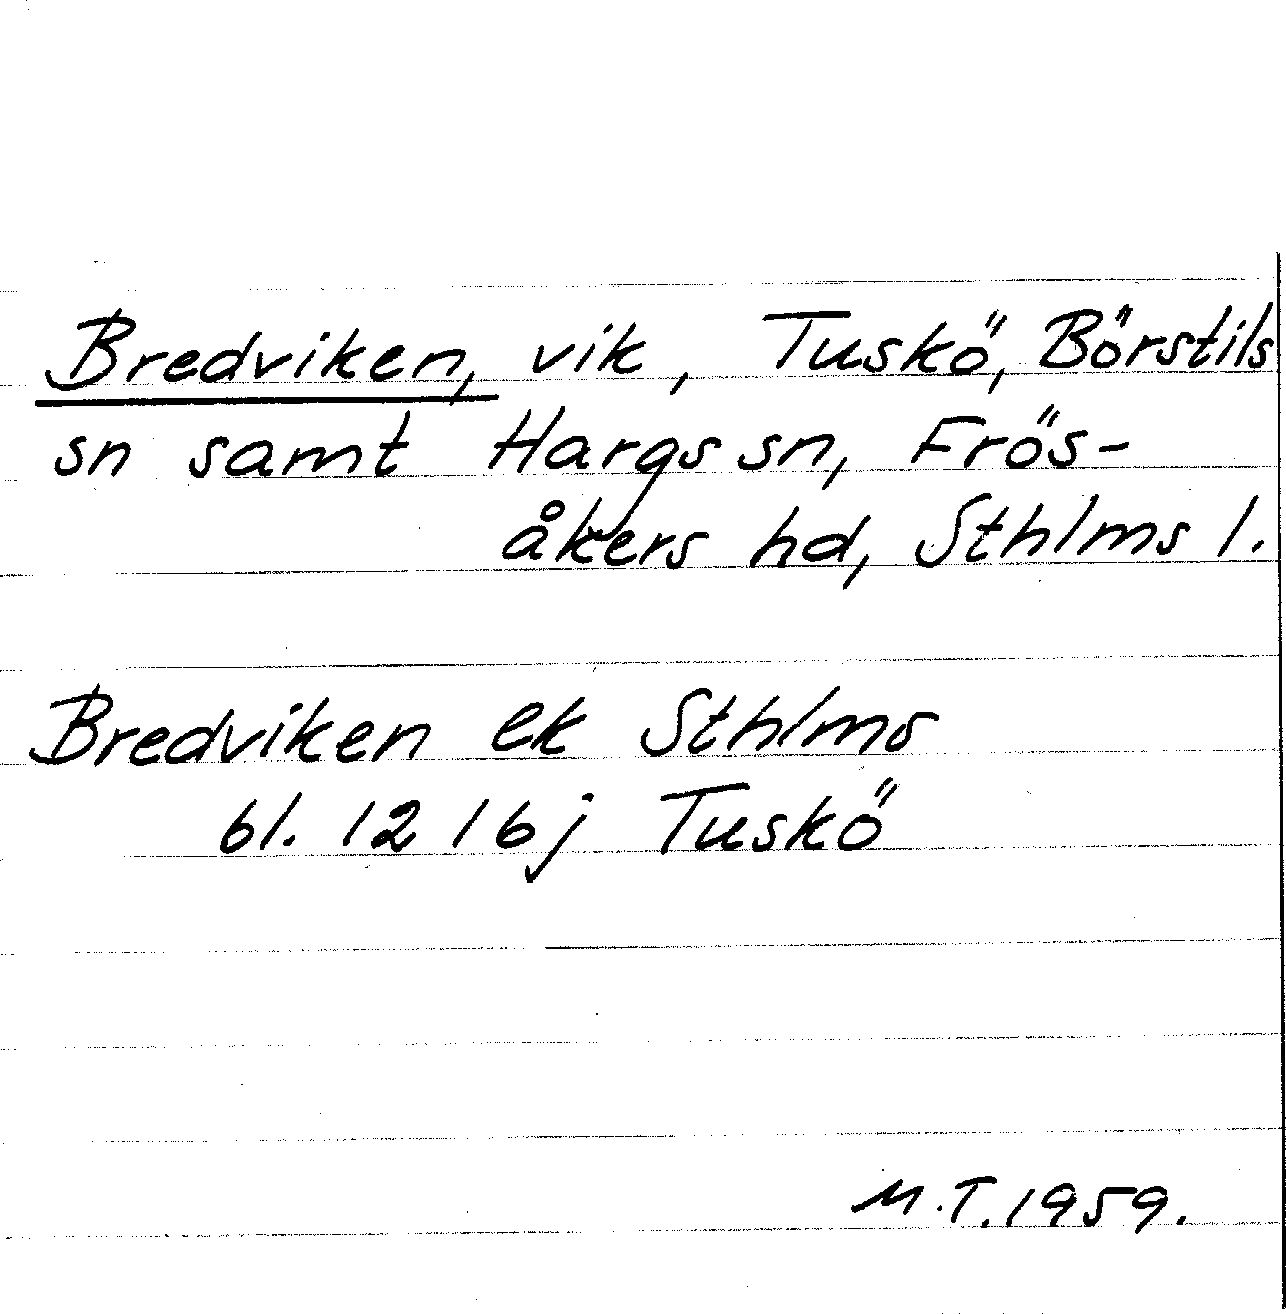 Bredviken, vik, Tuskö, Börstils
sn samt Hargs sn, Frös-
åkers hd, Sthlms l.
Bredviken ek Sthlms
bl. 12 I 6j Tuskö
M.T. 1959.